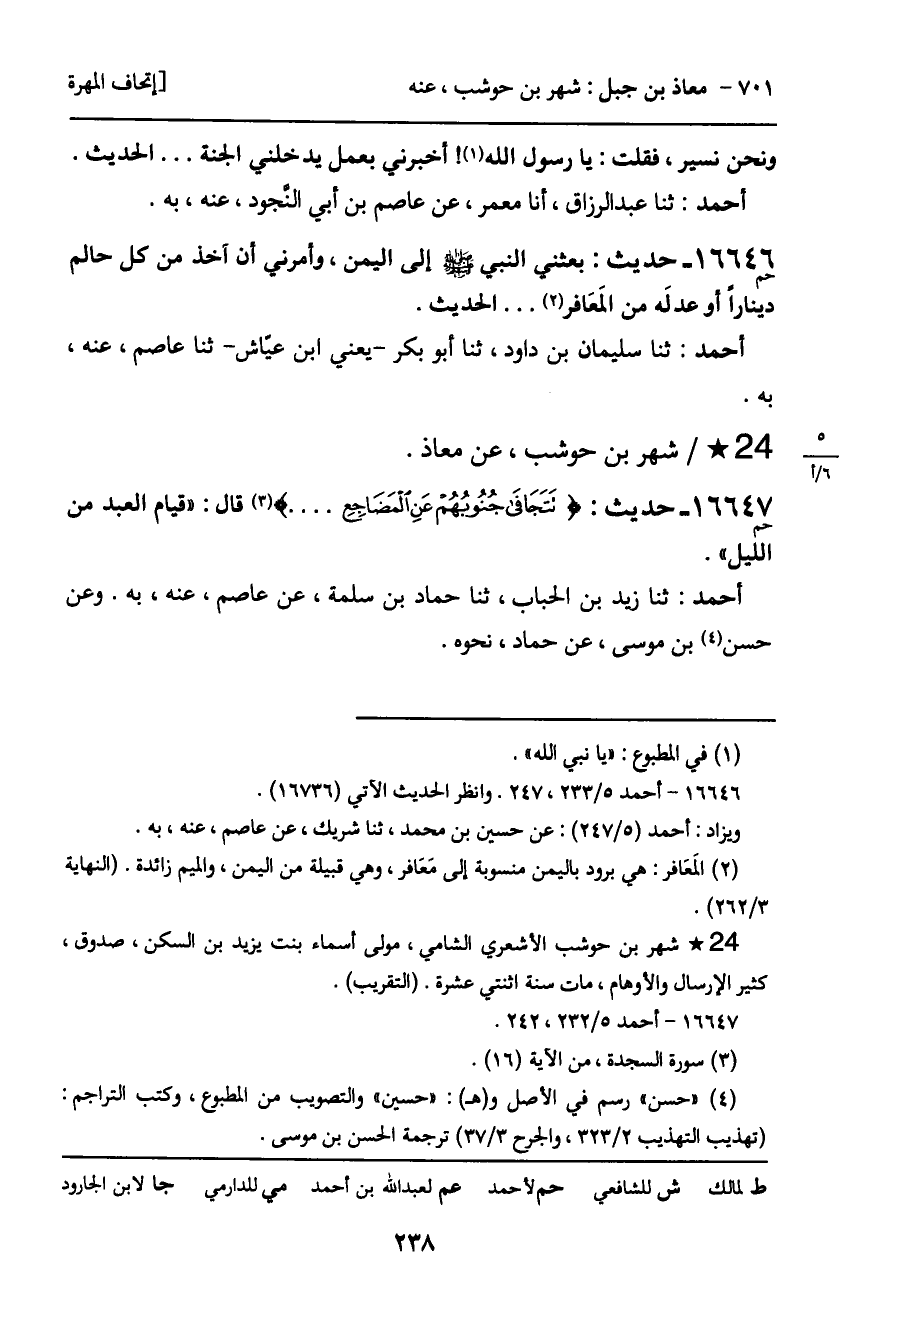 ٧٠١ - معاذ بن جبل : شهر بن حوشب ، عنه [إتحاف المهرة
ونحن نسير ، فقلت : يا رسول الله(١)! أخبرني بعمل يدخلني الجنة ... الحديث .
أحمد : ثنا عبدالرزاق ، أنا معمر ، عن عاصم بن أبي النَّجود ، عنه ، به .
١٦٦٤٦ـ حديث : بعثني النبي ﷺ إلى اليمن ، وأمرني أن آخذ من كل حالم
حم
ديناراً أو عدلَه من المَعَافر(٢) ... الحديث .
أحمد : ثنا سليمان بن داود ، ثنا أبو بكر -يعني ابن عيّاش- ثنا عاصم ، عنه ،
به .
24 ★ / شهر بن حوشب ، عن معاذ .
٥
٦/أ
١٦٦٤٧ـ حديث : ﴿ نَتَجَافَىٰ جُنُوبُهُمْ عَنِ ٱلْمَضَاجِعِ ....﴾(٣) قال : «قيام العبد من
حم
الليل» .
أحمد : ثنا زيد بن الحباب ، ثنا حماد بن سلمة ، عن عاصم ، عنه ، به . وعن
حسن(٤) بن موسى ، عن حماد ، نحوه .
(١) في المطبوع : «يا نبي الله» .
١٦٦٤٦ - أحمد ٢٣٣/٥ ، ٢٤٧ . وانظر الحديث الآتي (١٦٧٣٦) .
ويزاد : أحمد (٢٤٧/٥) : عن حسين بن محمد ، ثنا شريك ، عن عاصم ، عنه ، به .
(٢) المَعَافر : هي برود باليمن منسوبة إلى مَعَافر ، وهي قبيلة من اليمن ، والميم زائدة . (النهاية
٢٦٢/٣) .
24 ★ شهر بن حوشب الأشعري الشامي ، مولى أسماء بنت يزيد بن السكن ، صدوق ،
كثير الإرسال والأوهام ، مات سنة اثنتي عشرة . (التقريب) .
١٦٦٤٧ - أحمد ٢٣٢/٥ ، ٢٤٢ .
(٣) سورة السجدة ، من الآية (١٦) .
(٤) «حسن» رسم في الأصل و(هـ) : «حسين» والتصويب من المطبوع ، وكتب التراجم :
(تهذيب التهذيب ٣٢٣/٢ ، والجرح ٣٧/٣) ترجمة الحسن بن موسى .
ط لمالك ش للشافعي حم لأحمد عم لعبدالله بن أحمد مي للدارمي جا لابن الجارود
٢٣٨